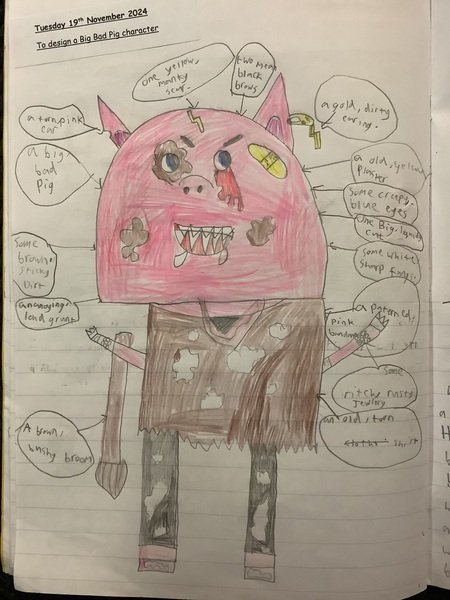 Tuesday 19th November 2024
To design a Big Bad Pig character
one yellow,
manky
scar.
two mean
black
brows
a gold, dirty
earing.
a torn, pink
ear
a big,
bad
pig
a old, yellow
plaster
Some creepy
blue eyes
One Big, liquid
cut
Some white,
sharp fangs.
Some
brown,
sticky
dirt
an annoying,
loud grunt
a paterned,
pink
Some
ritchy rusty
jewlery
an old, torn
shirt
A brown,
bushy broom